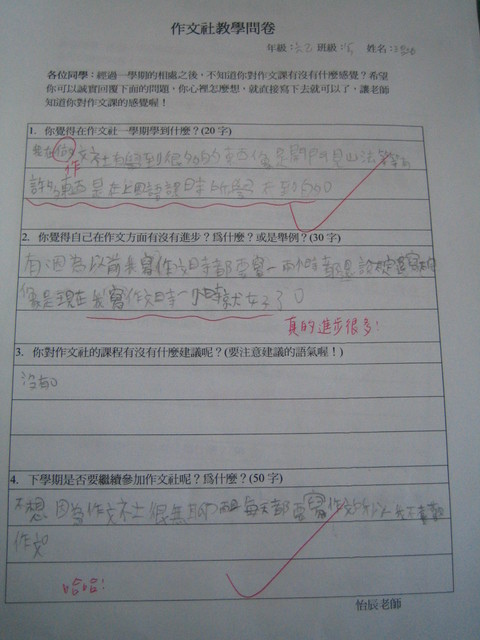 作文社教學問卷
年級: 班級: 姓名:
各位同學:經過一學期的相處之後,不知道你對作文課有沒有什麼感覺?希望
你可以誠實回覆下面的問題,你心裡怎麼想,就直接寫下去就可以了,讓老師
知道你對作文課的感覺喔!
1. 你覺得在作文社一學期學到什麼?(20 字)
作
許多東西是在上國語課時所學不到的。
2. 你覺得自己在作文方面有沒有進步?為什麼?或是舉例?(30 字)
有,因為以前我寫作文時都要寫一兩個小時
像是現在我寫作文時一小時就好了。
真的進步很多!
3. 你對作文社的課程有沒有什麼建議呢?(要注意建議的語氣喔!)
沒有。
4. 下學期是否要繼續參加作文社呢?為什麼?(50 字)
不想,因為作文社很無聊,而且每天都要寫作文,所以我不喜歡
作文。
哈哈!
怡辰老師